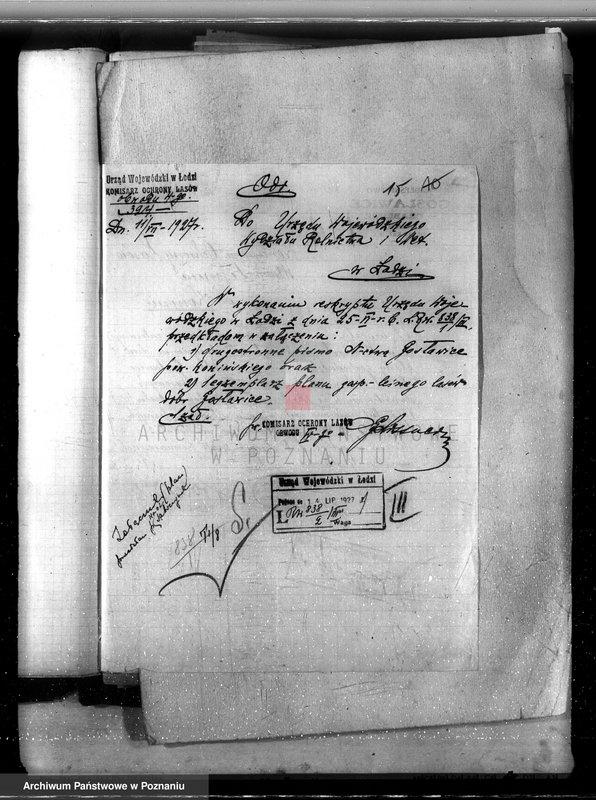 Urząd Wojewódzki w Łodzi
KOMISARZ OCHRONY LASÓW
obwodu II-go
Dn. 11/VII - 1927r.
Odp.
15
Do Urzędu Wojewódzkiego
Wydziału Rolnictwa i Wet.
w Łodzi
W wykonaniu reskryptu Urzędu Woje
wódzkiego w Łodzi z dnia 25-II-r.b. L.
przedkładam w załączeniu:
1) drugostronne pismo N-ctwa Gosławice
pow. Konińskiego oraz
2) 1 egzemplarz planu gosp.-leśnego lasów
dóbr Gosławice.
KOMISARZ OCHRONY LASÓW
OBWODU II-go
ARCHIWUM PAŃSTWOWE
W POZNANIU
Urząd Wojewódzki w Łodzi
14 LIP 1927
L. 838
III
838
Archiwum Państwowe w Poznaniu